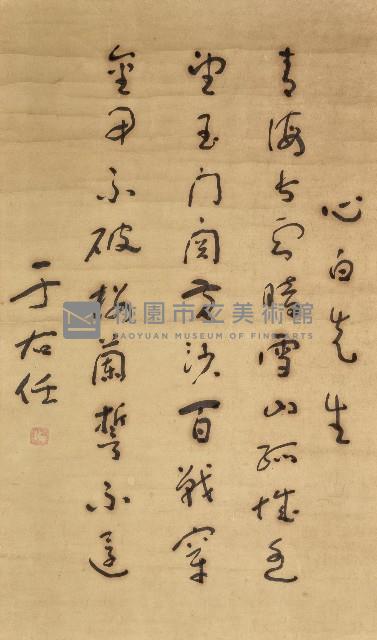 心白先生
青海長雲暗雪山孤城遙
望玉门関黃沙百戰穿
金甲不破樓蘭誓不還
于右任
桃園市立美術館
TAOYUAN MUSEUM OF FINE ARTS